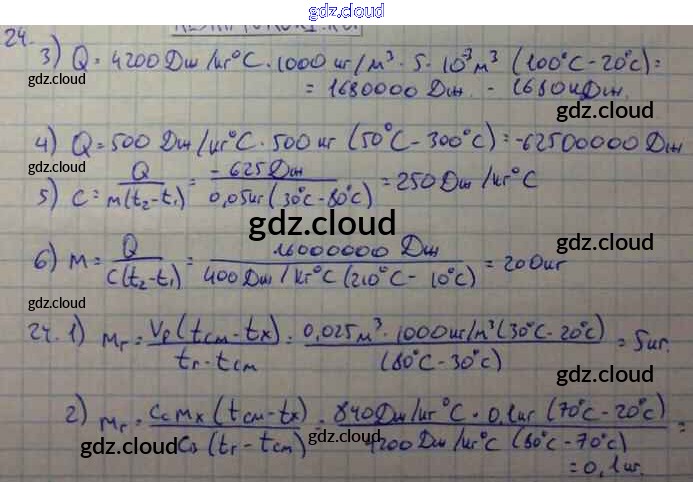 gdz.cloud
24.
3) Q = 4200 Дж/кг°C · 1000 кг/м³ · 5 · 10⁻³ м³ (100°C - 20°C) =
gdz.cloud
= 1680000 Дж - 1680 кДж.
gdz.cloud
gdz.cloud
4) Q = 500 Дж/кг°C · 500 кг (50°C - 300°C) = -62500000 Дж
5) C = Q / m(t₂-t₁) = -625 Дж / 0,05 кг (30°C - 80°C) = 250 Дж/кг°C
gdz.cloud
gdz.cloud
gdz.cloud
6) m = Q / C(t₂-t₁) = 16000000 Дж / 400 Дж/кг°C (210°C - 10°C) = 200 кг
gdz.cloud
gdz.cloud
24. 1) mг = Vρ(tсм - tх) / tг - tсм = 0,025 м³ · 1000 кг/м³ (30°C - 20°C) / (80°C - 30°C) = 5 кг.
gdz.cloud
2) mг = Cc mх (tсм - tх) / Cв (tг - tсм) = 840 Дж/кг°C · 0,1 кг (70°C - 20°C) / 4200 Дж/кг°C (80°C - 70°C) =
gdz.cloud
gdz.cloud
= 0,1 кг.
gdz.cloud